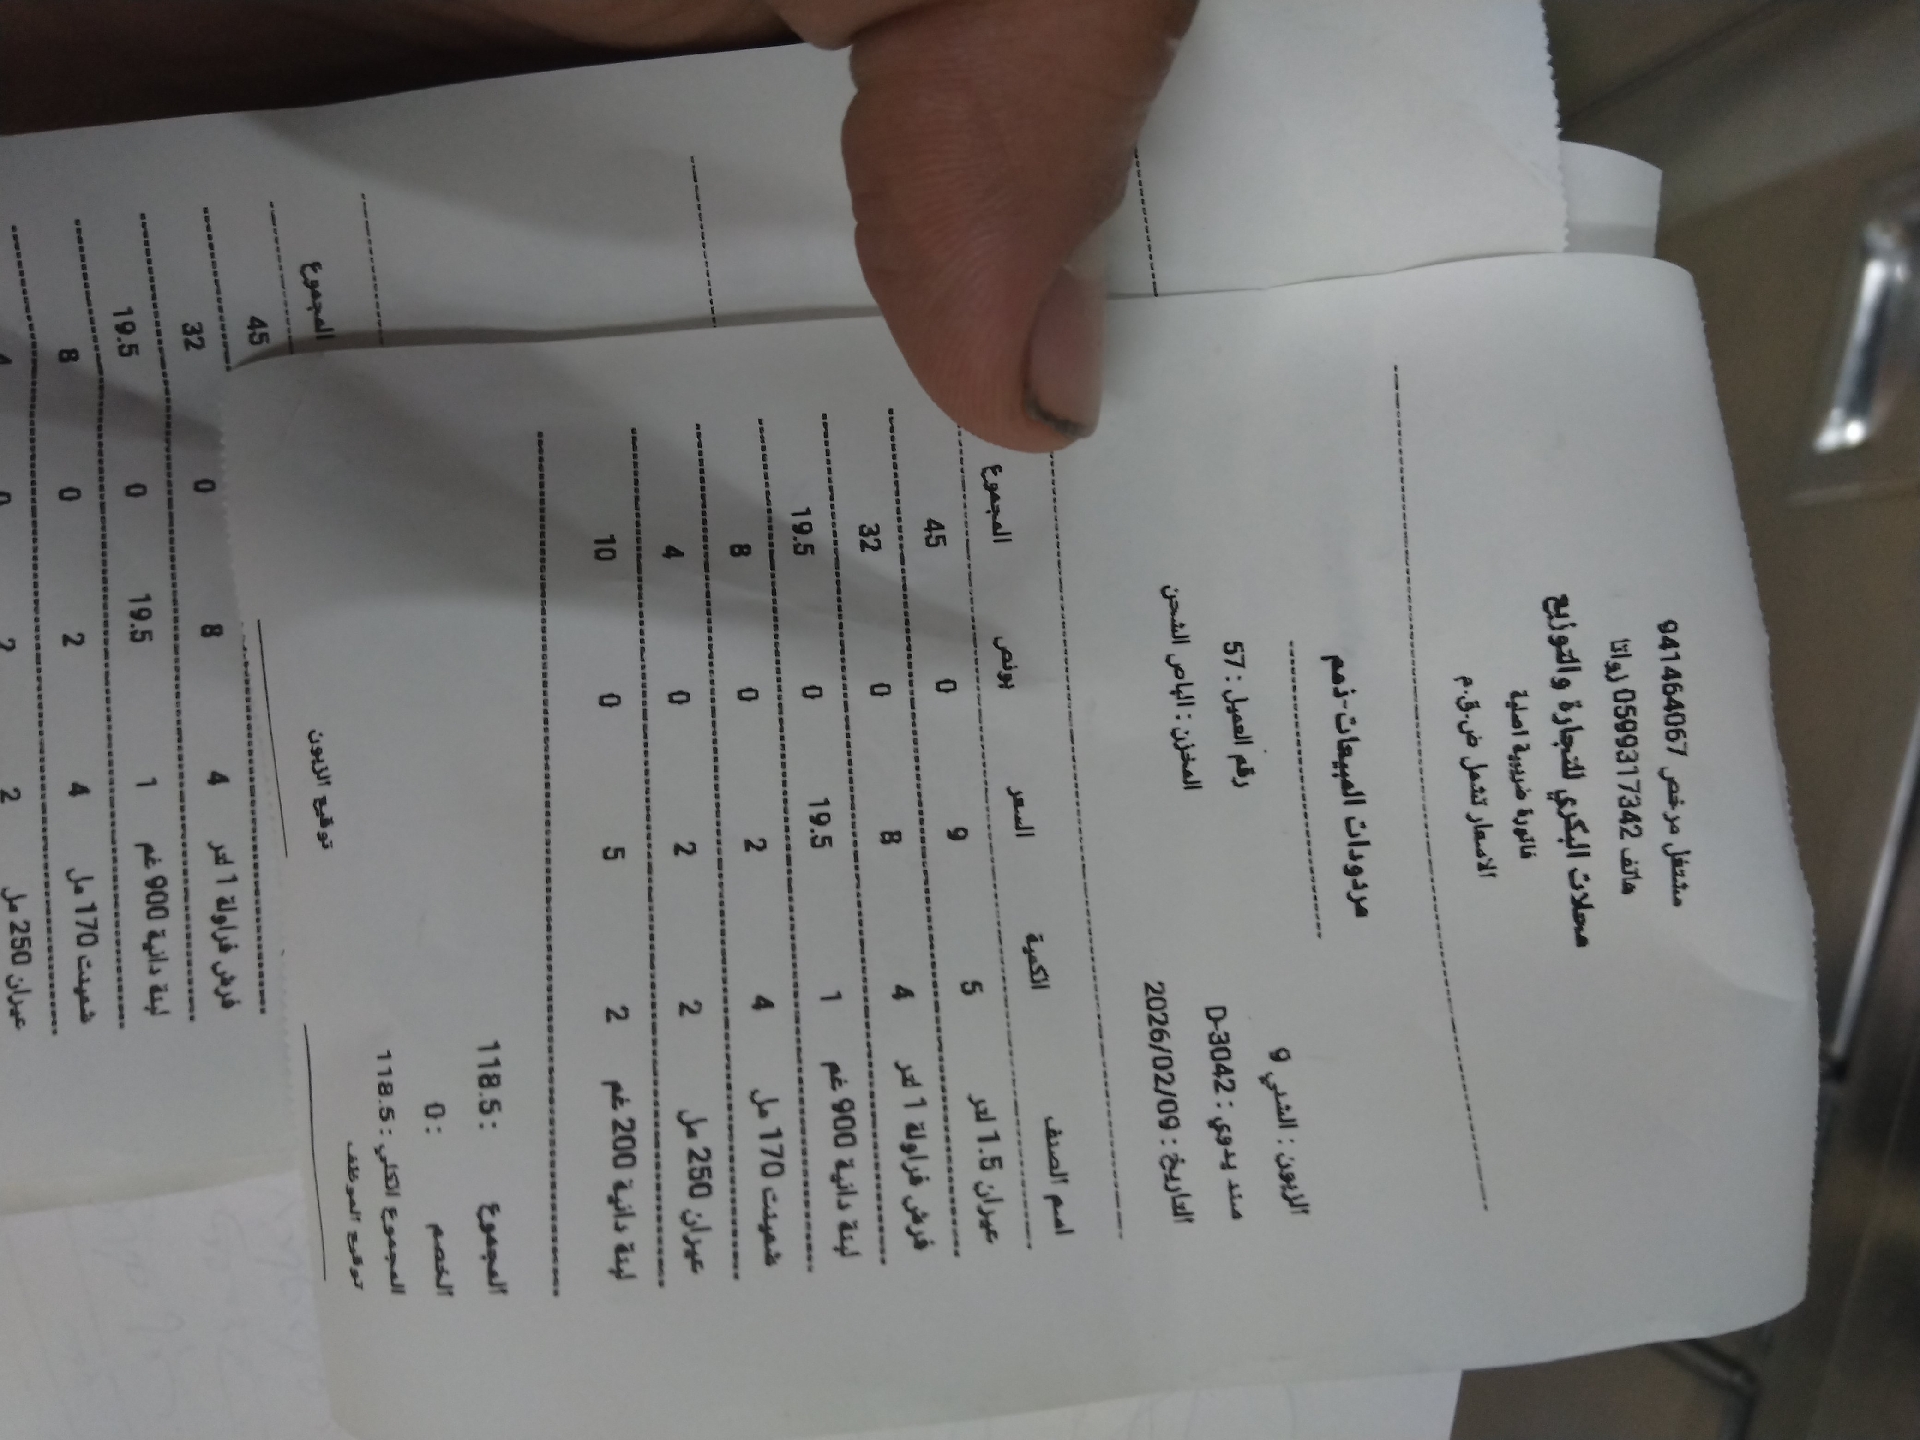 مشتغل مرخص 941464067
هاتف 0599317342 زوانا
محلات البكري للتجارة والتوزيع
فاتورة ضريبية اصلية
الاسعار تشمل ض.ق.م
مردودات المبيعات-ذمم
الزبون : الشلبي 9
سند يدوي : D-3042 رقم العميل : 57
التاريخ : 2026/02/09 المخزن : الباص الشحن
اسم الصنف الكمية السعر بونص المجموع
عيران 1.5 لتر 5 9 0 45
فرش فراولة 1 لتر 4 8 0 32
لبنة دانية 900 غم 1 19.5 0 19.5
شمينت 170 مل 4 2 0 8
عيران 250 مل 2 2 0 4
لبنة دانية 200 غم 2 5 0 10
المجموع : 118.5
الخصم : 0
المجموع الكلي : 118.5
توقيع الموظف توقيع الزبون
المجموع
45
فرش فراولة 1 لتر 4 8 0 32
لبنة دانية 900 غم 1 19.5 0 19.5
شمينت 170 مل 4 2 0 8
عيران 250 مل 2 2 0 4